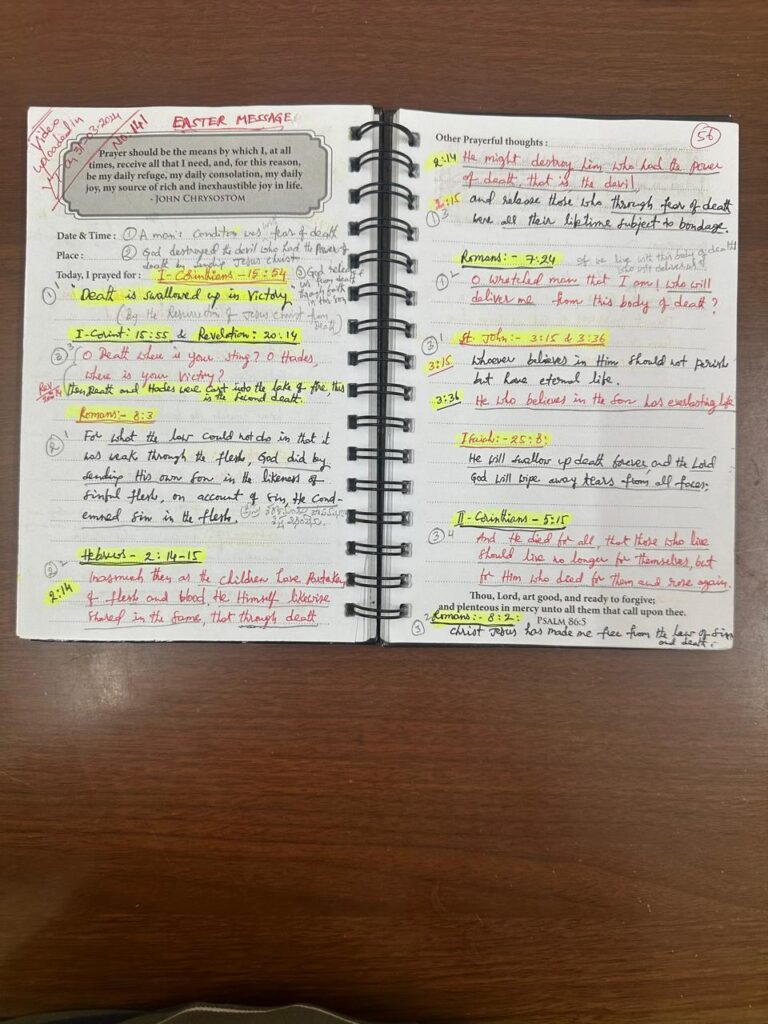 Video
uploaded in
on 31-03-2024
NO: 141
EASTER MESSAGE
Prayer should be the means by which I, at all
times, receive all that I need, and, for this reason,
be my daily refuge, my daily consolation, my daily
joy, my source of rich and inexhaustible joy in life.
- JOHN CHRYSOSTOM
Date & Time : ① A man's condition was fear of death
Place : ② God destroyed the devil who had the Power of
death by Jesus Christ
Today, I prayed for : I - Corinthians - 15 : 54
③ God
us from death
through faith
in
① 1 "Death is swallowed up in Victory
(By the Resurrection of Jesus Christ from
Death)
I-Corint: 15:55 & Revelation: 20:14
③ 3 O Death where is your sting? O Hades,
where is your victory?
Rev 20:14 then Death and Hades were cast into the lake of fire, this
is the second death.
Romans:- 8:3
② 1 For what the law could not do in that it
was weak through the flesh, God did by
sending His own Son in the likeness of
sinful flesh, on account of sin, He cond-
emned sin in the flesh.
Hebrews - 2: 14-15
② 2 Inasmuch then as the children have Partaken
2:14 of flesh and blood, He Himself likewise
shared in the same, that through death
56
Other Prayerful thoughts :
2:14 He might destroy him who had the power
of death, that is the devil,
2:15 and release those who through fear of death
① 3 were all their lifetime subject to bondage.
Romans: - 7:24 if we live with this body of death
who will deliver us
① 2 O wretched man that I am! who will
deliver me from this body of death?
③ 1 St. John:- 3:15 & 3:36
3:15 whoever believes in Him should not perish
but have eternal life.
3:36 He who believes in the Son has everlasting life
Isaiah:- 25:8:
He will swallow up death forever, and the Lord
God will wipe away tears from all faces:
II - Corinthians - 5:15
③ 4 And He died for all, that those who live
should live no longer for themselves, but
for Him who died for them and rose again.
Thou, Lord, art good, and ready to forgive;
and plenteous in mercy unto all them that call upon thee.
Romans:- 8:2: PSALM 86:5
③ 2 Christ Jesus has made me free from the law of Sin
and death.